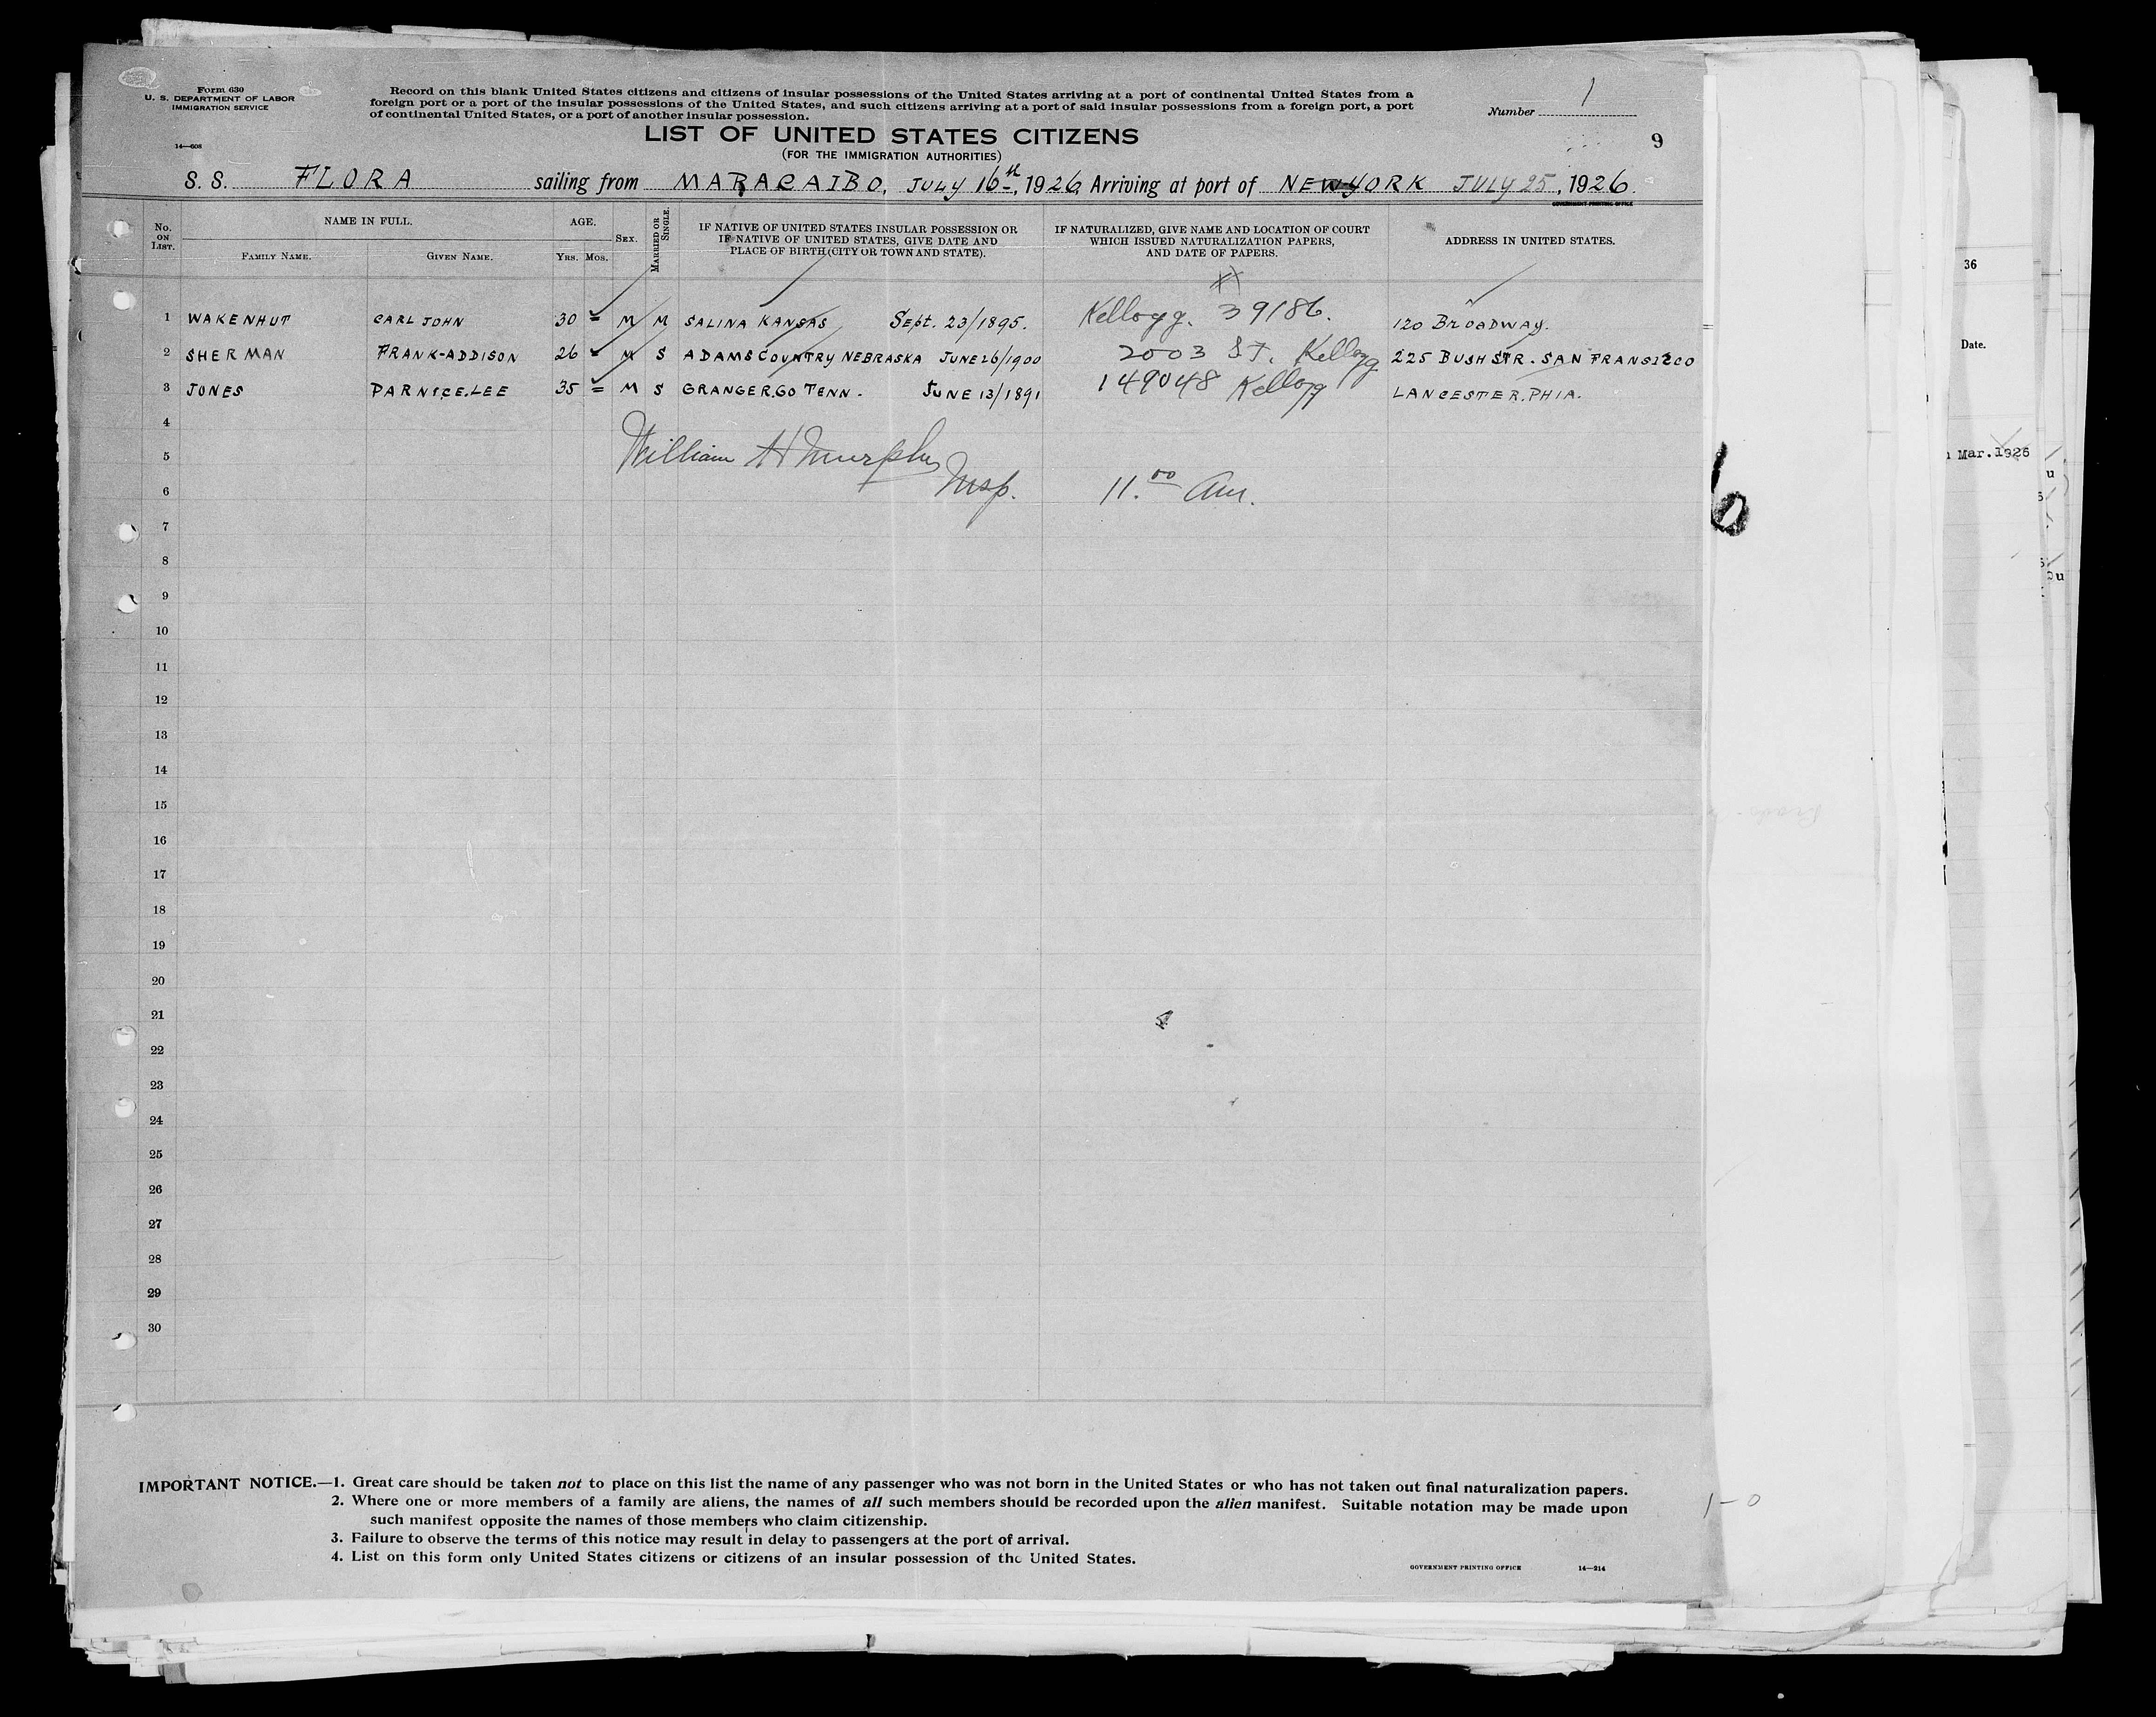 Form 630
U. S. DEPARTMENT OF LABOR
IMMIGRATION SERVICE
14—608
Record on this blank United States citizens and citizens of insular possessions of the United States arriving at a port of continental United States from a
foreign port or a port of the insular possessions of the United States, and such citizens arriving at a port of said insular possessions from a foreign port, a port
of continental United States, or a port of another insular possession.
Number 1
LIST OF UNITED STATES CITIZENS
(FOR THE IMMIGRATION AUTHORITIES)
9
S. S. FLORA sailing from MARACAIBO, JULY 16th, 1926, Arriving at port of NEW-YORK JULY 25, 1926.
GOVERNMENT PRINTING OFFICE
No. ON LIST. NAME IN FULL. AGE. SEX. MARRIED OR SINGLE. IF NATIVE OF UNITED STATES INSULAR POSSESSION OR IF NATIVE OF UNITED STATES, GIVE DATE AND PLACE OF BIRTH (CITY OR TOWN AND STATE). IF NATURALIZED, GIVE NAME AND LOCATION OF COURT WHICH ISSUED NATURALIZATION PAPERS, AND DATE OF PAPERS. ADDRESS IN UNITED STATES.
FAMILY NAME. GIVEN NAME. YRS. MOS.
1 WAKENHUT CARL JOHN 30 = M M SALINA KANSAS Sept. 23/1895. Kellogg. 39186. 120 BROADWAY.
2 SHERMAN FRANK-ADDISON 26 M S ADAMS COUNTRY NEBRASKA JUNE 26/1900 2003 St. Kellogg 225 BUSH STR. SAN FRANSISCO
3 JONES PARNICE.LEE 35 = M S GRANGER.CO TENN. JUNE 13/1891 149048 Kellogg LANCESTER.PHIA.
4
5 William H Murphy
6 Insp. 11.00 Am.
7
8
9
10
11
12
13
14
15
16
17
18
19
20
21
22
23
24
25
26
27
28
29
30
IMPORTANT NOTICE.—1. Great care should be taken not to place on this list the name of any passenger who was not born in the United States or who has not taken out final naturalization papers.
2. Where one or more members of a family are aliens, the names of all such members should be recorded upon the alien manifest. Suitable notation may be made upon
such manifest opposite the names of those members who claim citizenship.
3. Failure to observe the terms of this notice may result in delay to passengers at the port of arrival.
4. List on this form only United States citizens or citizens of an insular possession of the United States.
GOVERNMENT PRINTING OFFICE 14—214
1-0
36
Date.
Mar. 1926